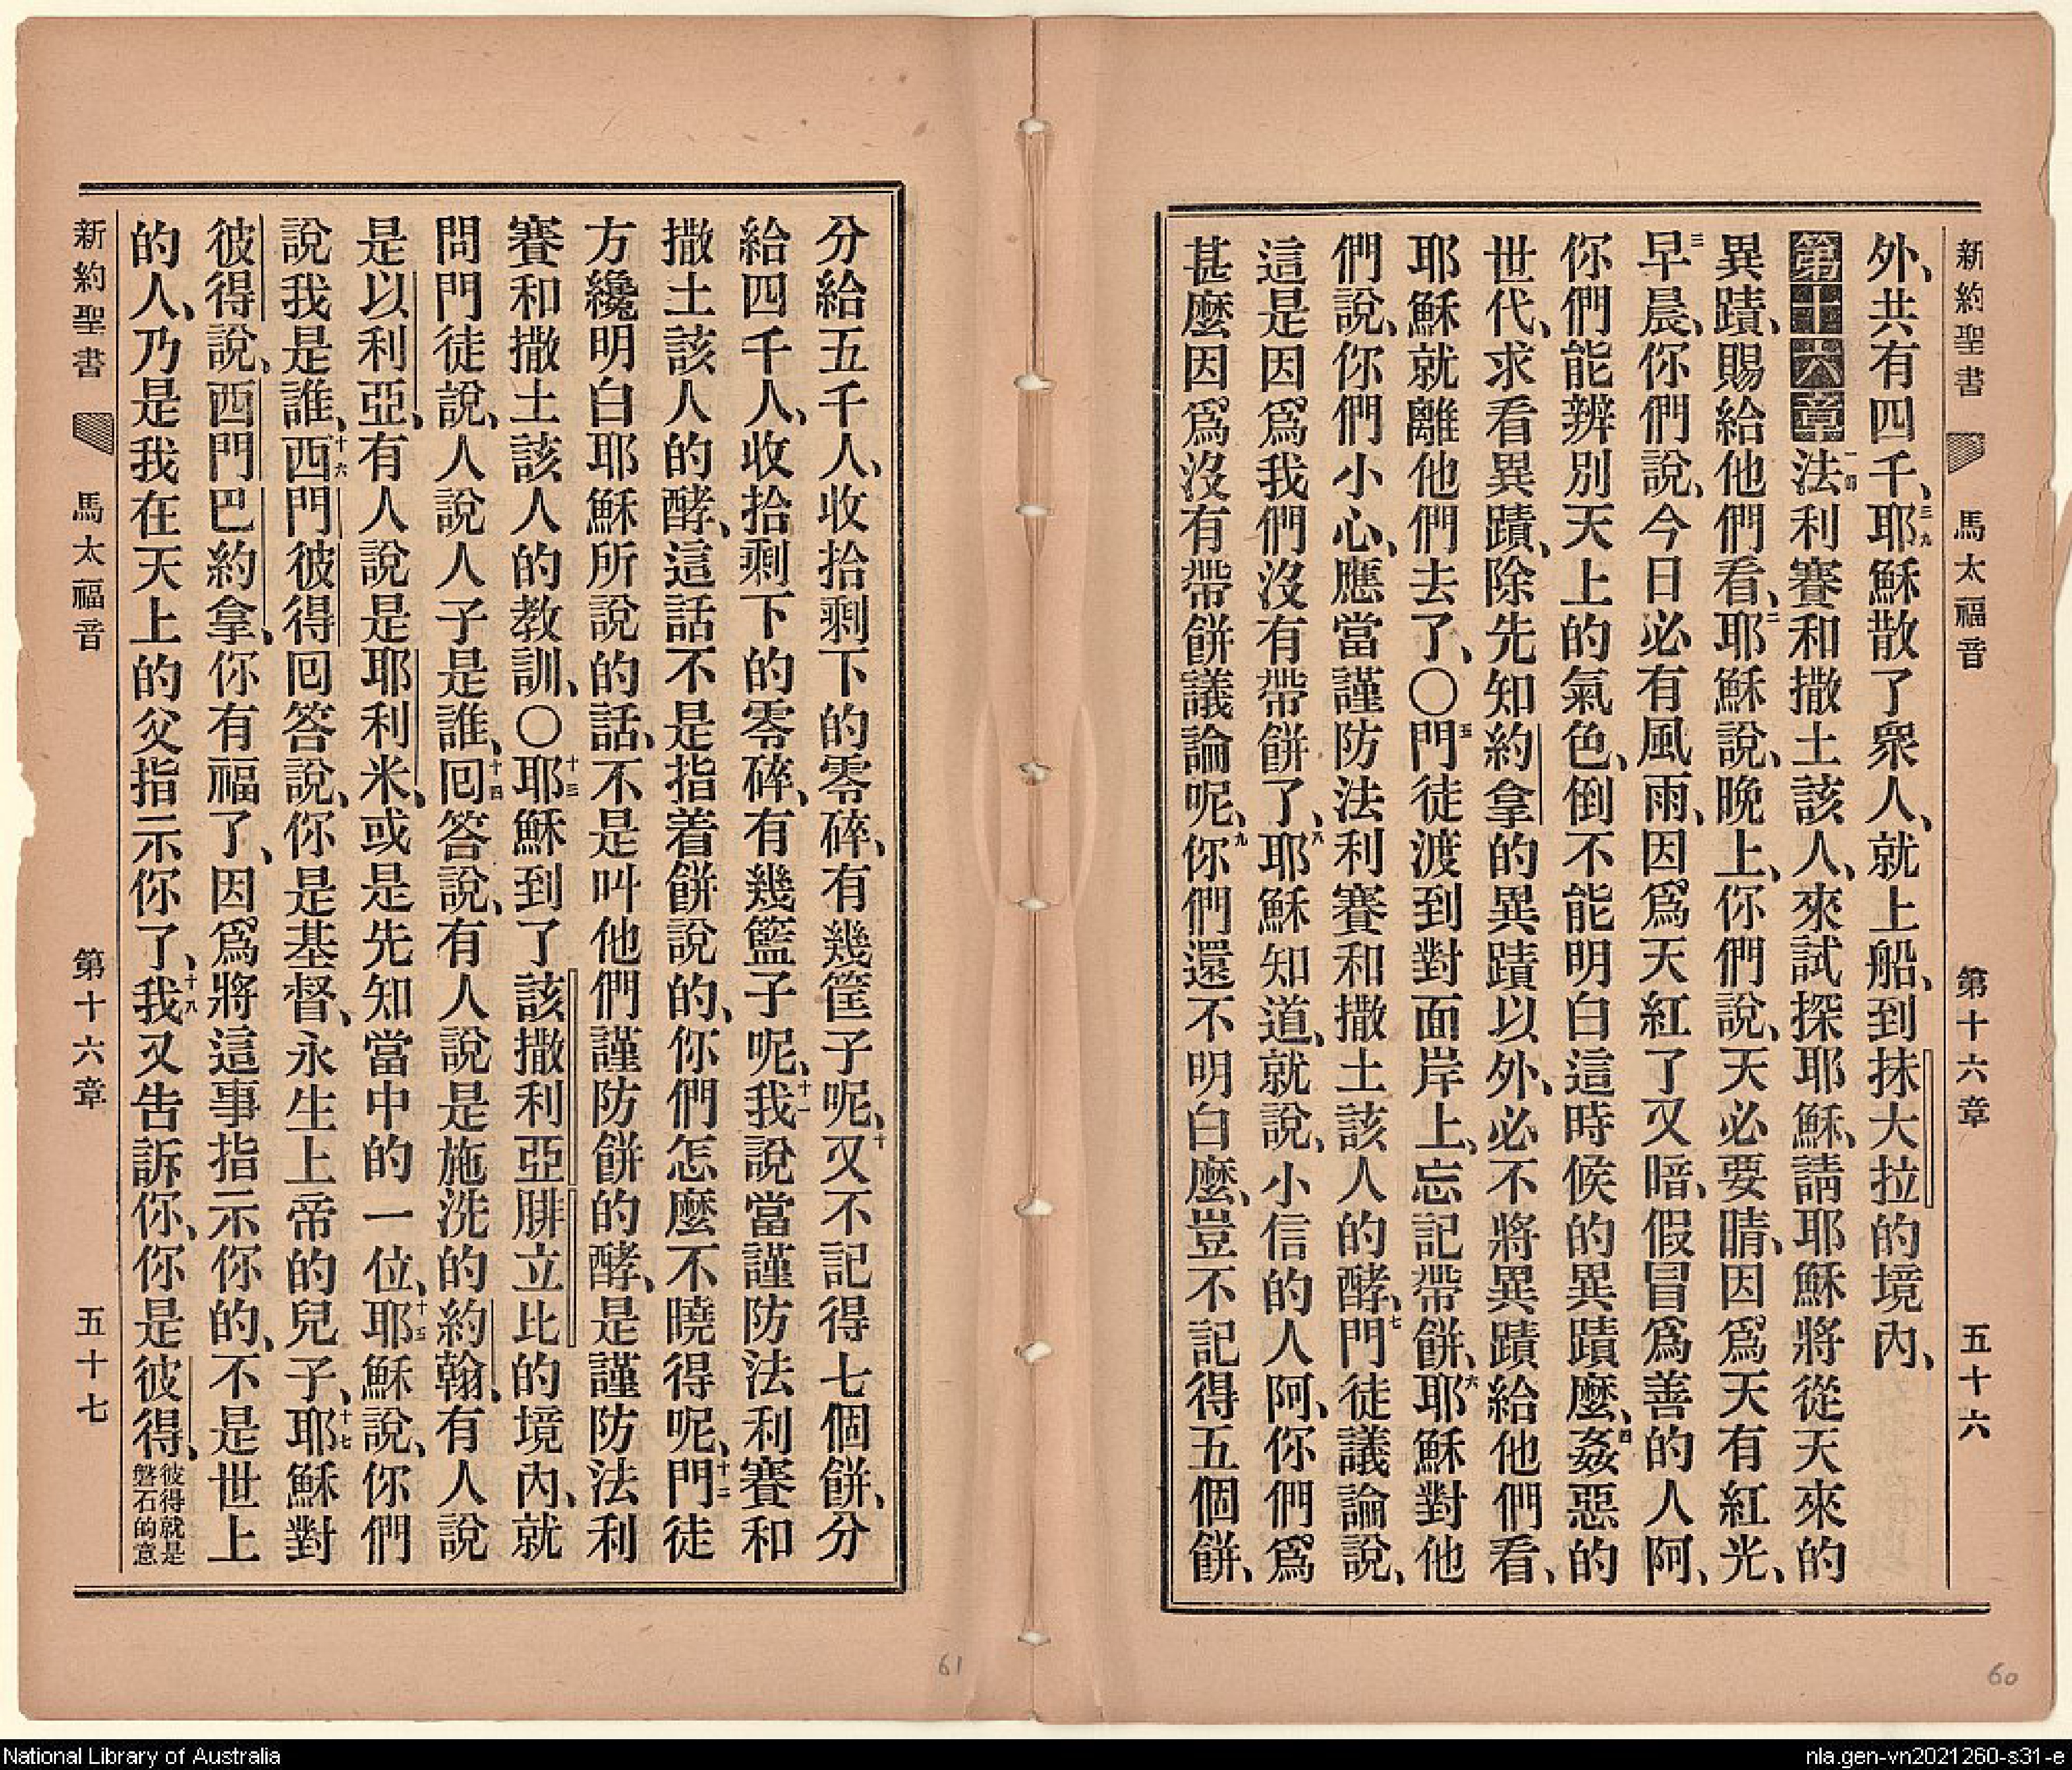 新約聖書 馬太福音 第十六章 五十六
外、共有四千、三九耶穌散了衆人、就上船、到抹大拉的境內、
第十六章一法利賽和撒土該人、來試探耶穌、請耶穌將從天來的
異蹟、賜給他們看、二耶穌說、晚上、你們說、天必要晴、因爲天有紅光、
三早晨、你們說、今日必有風雨、因爲天紅了又暗、假冒爲善的人阿、
你們能辨別天上的氣色、倒不能明白這時候的異蹟麼、四姦惡的
世代、求看異蹟、除先知約拿的異蹟以外、必不將異蹟給他們看、
耶穌就離他們去了、〇五門徒渡到對面岸上、忘記帶餅、六耶穌對他
們說、你們小心、應當謹防法利賽和撒土該人的酵、七門徒議論說、
這是因爲我們沒有帶餅了、八耶穌知道、就說、小信的人阿、你們爲
甚麼因爲沒有帶餅議論呢、九你們還不明白麼、豈不記得五個餅、
分給五千人、收拾剩下的零碎、有幾筐子呢、十又不記得七個餅、分
給四千人、收拾剩下的零碎、有幾籃子呢、十一我說當謹防法利賽和
撒土該人的酵、這話不是指着餅說的、你們怎麼不曉得呢、十二門徒
方纔明白耶穌所說的話、不是叫他們謹防餅的酵、是謹防法利
賽和撒土該人的教訓、〇十三耶穌到了該撒利亞腓立比的境內、就
問門徒說、人說人子是誰、十四回答說、有人說是施洗的約翰、有人說
是以利亞、有人說是耶利米、或是先知當中的一位、十五耶穌說、你們
說我是誰、十六西門彼得回答說、你是基督、永生上帝的兒子、十七耶穌對
彼得說、西門巴約拿、你有福了、因爲將這事指示你的、不是世上
的人、乃是我在天上的父指示你了、十九我又告訴你、你是彼得、彼得就是磐石的意
新約聖書 馬太福音 第十六章 五十七
61
60
National Library of Australia
nla.gen-vn2021260-s31-e